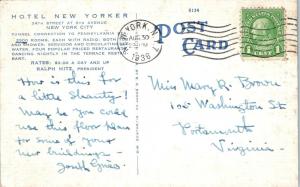 HOTEL NEW YORKER
34TH STREET AT 8TH AVENUE
NEW YORK CITY
TUNNEL CONNECTION TO PENNSYLVANIA
2500 ROOMS, EACH WITH RADIO, BOTH
AND SHOWER, SERVIDOR AND CIRCULATING
WATER. FOUR POPULAR PRICED RESTAURANTS
DANCING NIGHTLY IN THE TERRACE
RATES: $3.00 A DAY AND UP
RALPH HITZ, PRESIDENT
How is this for
a little Shanty!
May be you could
use this floor plan
for some of your
new buildings—
6134
POST
CARD
NEW YORK, N.
AUG 30
1936
1
Miss Mary R. Brown
Washington St
Portsmouth
Virginia.